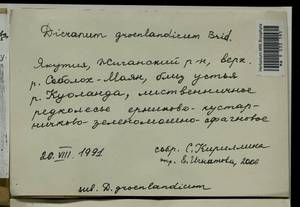 Dicranum groenlandicum Brid.
Якутия, Жиганский р-н, верх.
р. Соболох-Маян, близ устья
р. Куоланда, лиственничное
редколесье ерниково-кустар-
ничково-зеленомошно-сфагновое
20.VIII.1991
собр. С. Кириллина
опр. Е. Игнатова, 2000
inv. D. groenlandicum